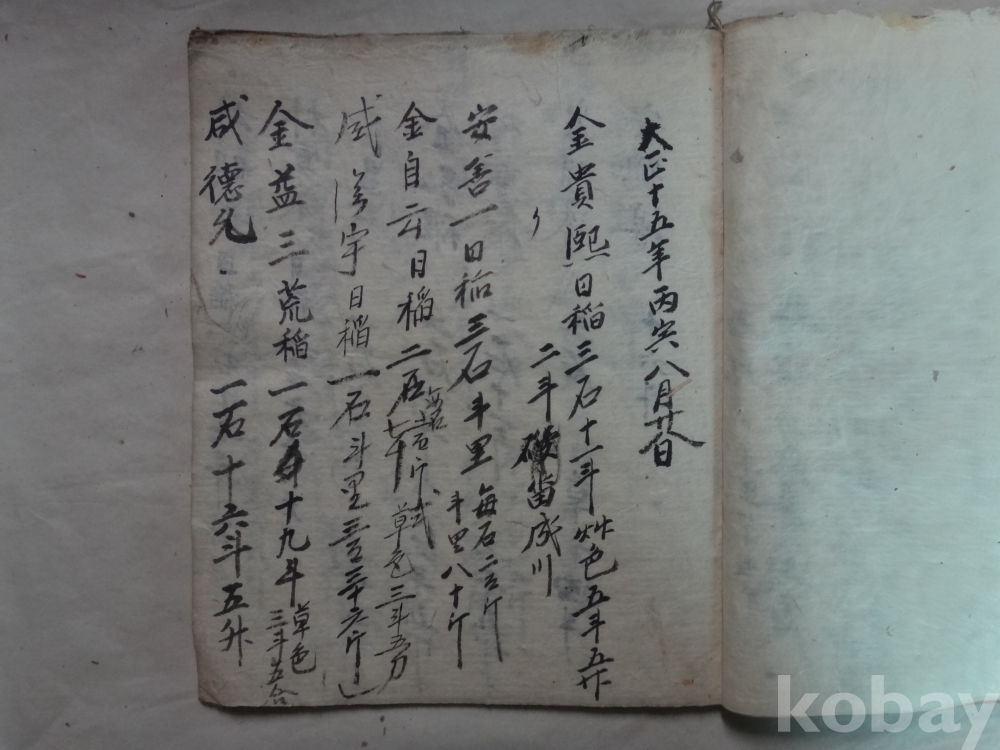 大正十五年丙寅八月廿日
金貴熙日稲三石十一斗艸色五斗五升
二斗 畓成川
安善一日稲三石斗里每石二百斤
斗里八十斤
金自云日稲二石
草色三斗五刀
咸 宇日稲一石斗里 三百三十六斤
金益三荒稲一石十九斗草色
三斗五合
咸德允 一石十六斗五升
kobay